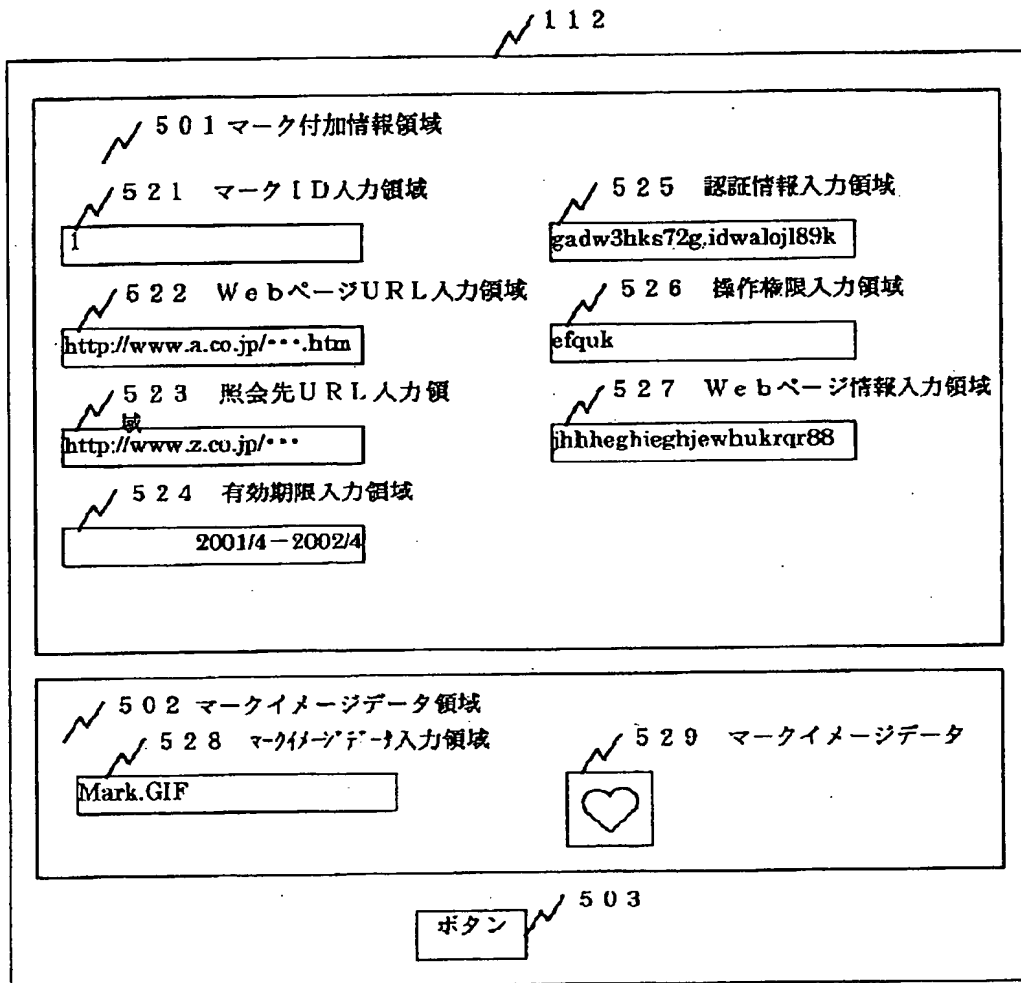 112
501 マーク付加情報領域
521 マークID入力領域
1
522 WebページURL入力領域
http://www.a.co.jp/・・・.htm
523 照会先URL入力領
域
http://www.z.co.jp/・・・
524 有効期限入力領域
2001/4－2002/4
525 認証情報入力領域
gadw3hks72g.idwalojl89k
526 操作権限入力領域
efquk
527 Webページ情報入力領域
jhhheghieghjewhukrqr88
502 マークイメージデータ領域
528 マークイメージデータ入力領域
Mark.GIF
529 マークイメージデータ
ボタン
503